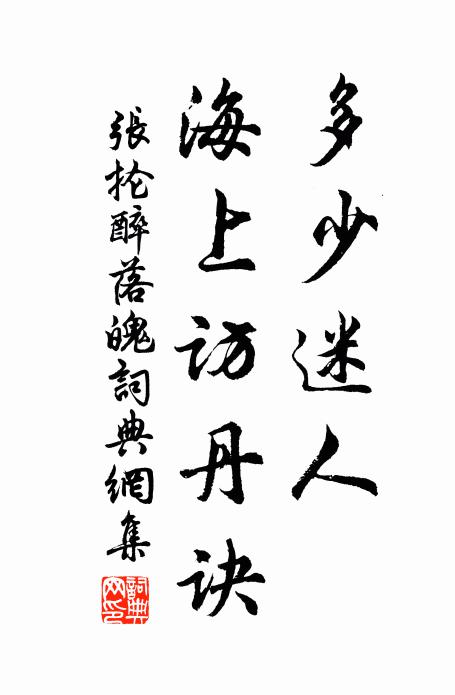 多少迷人
海上访丹诀
張抡醉落魄詞典網集
詞典
网印